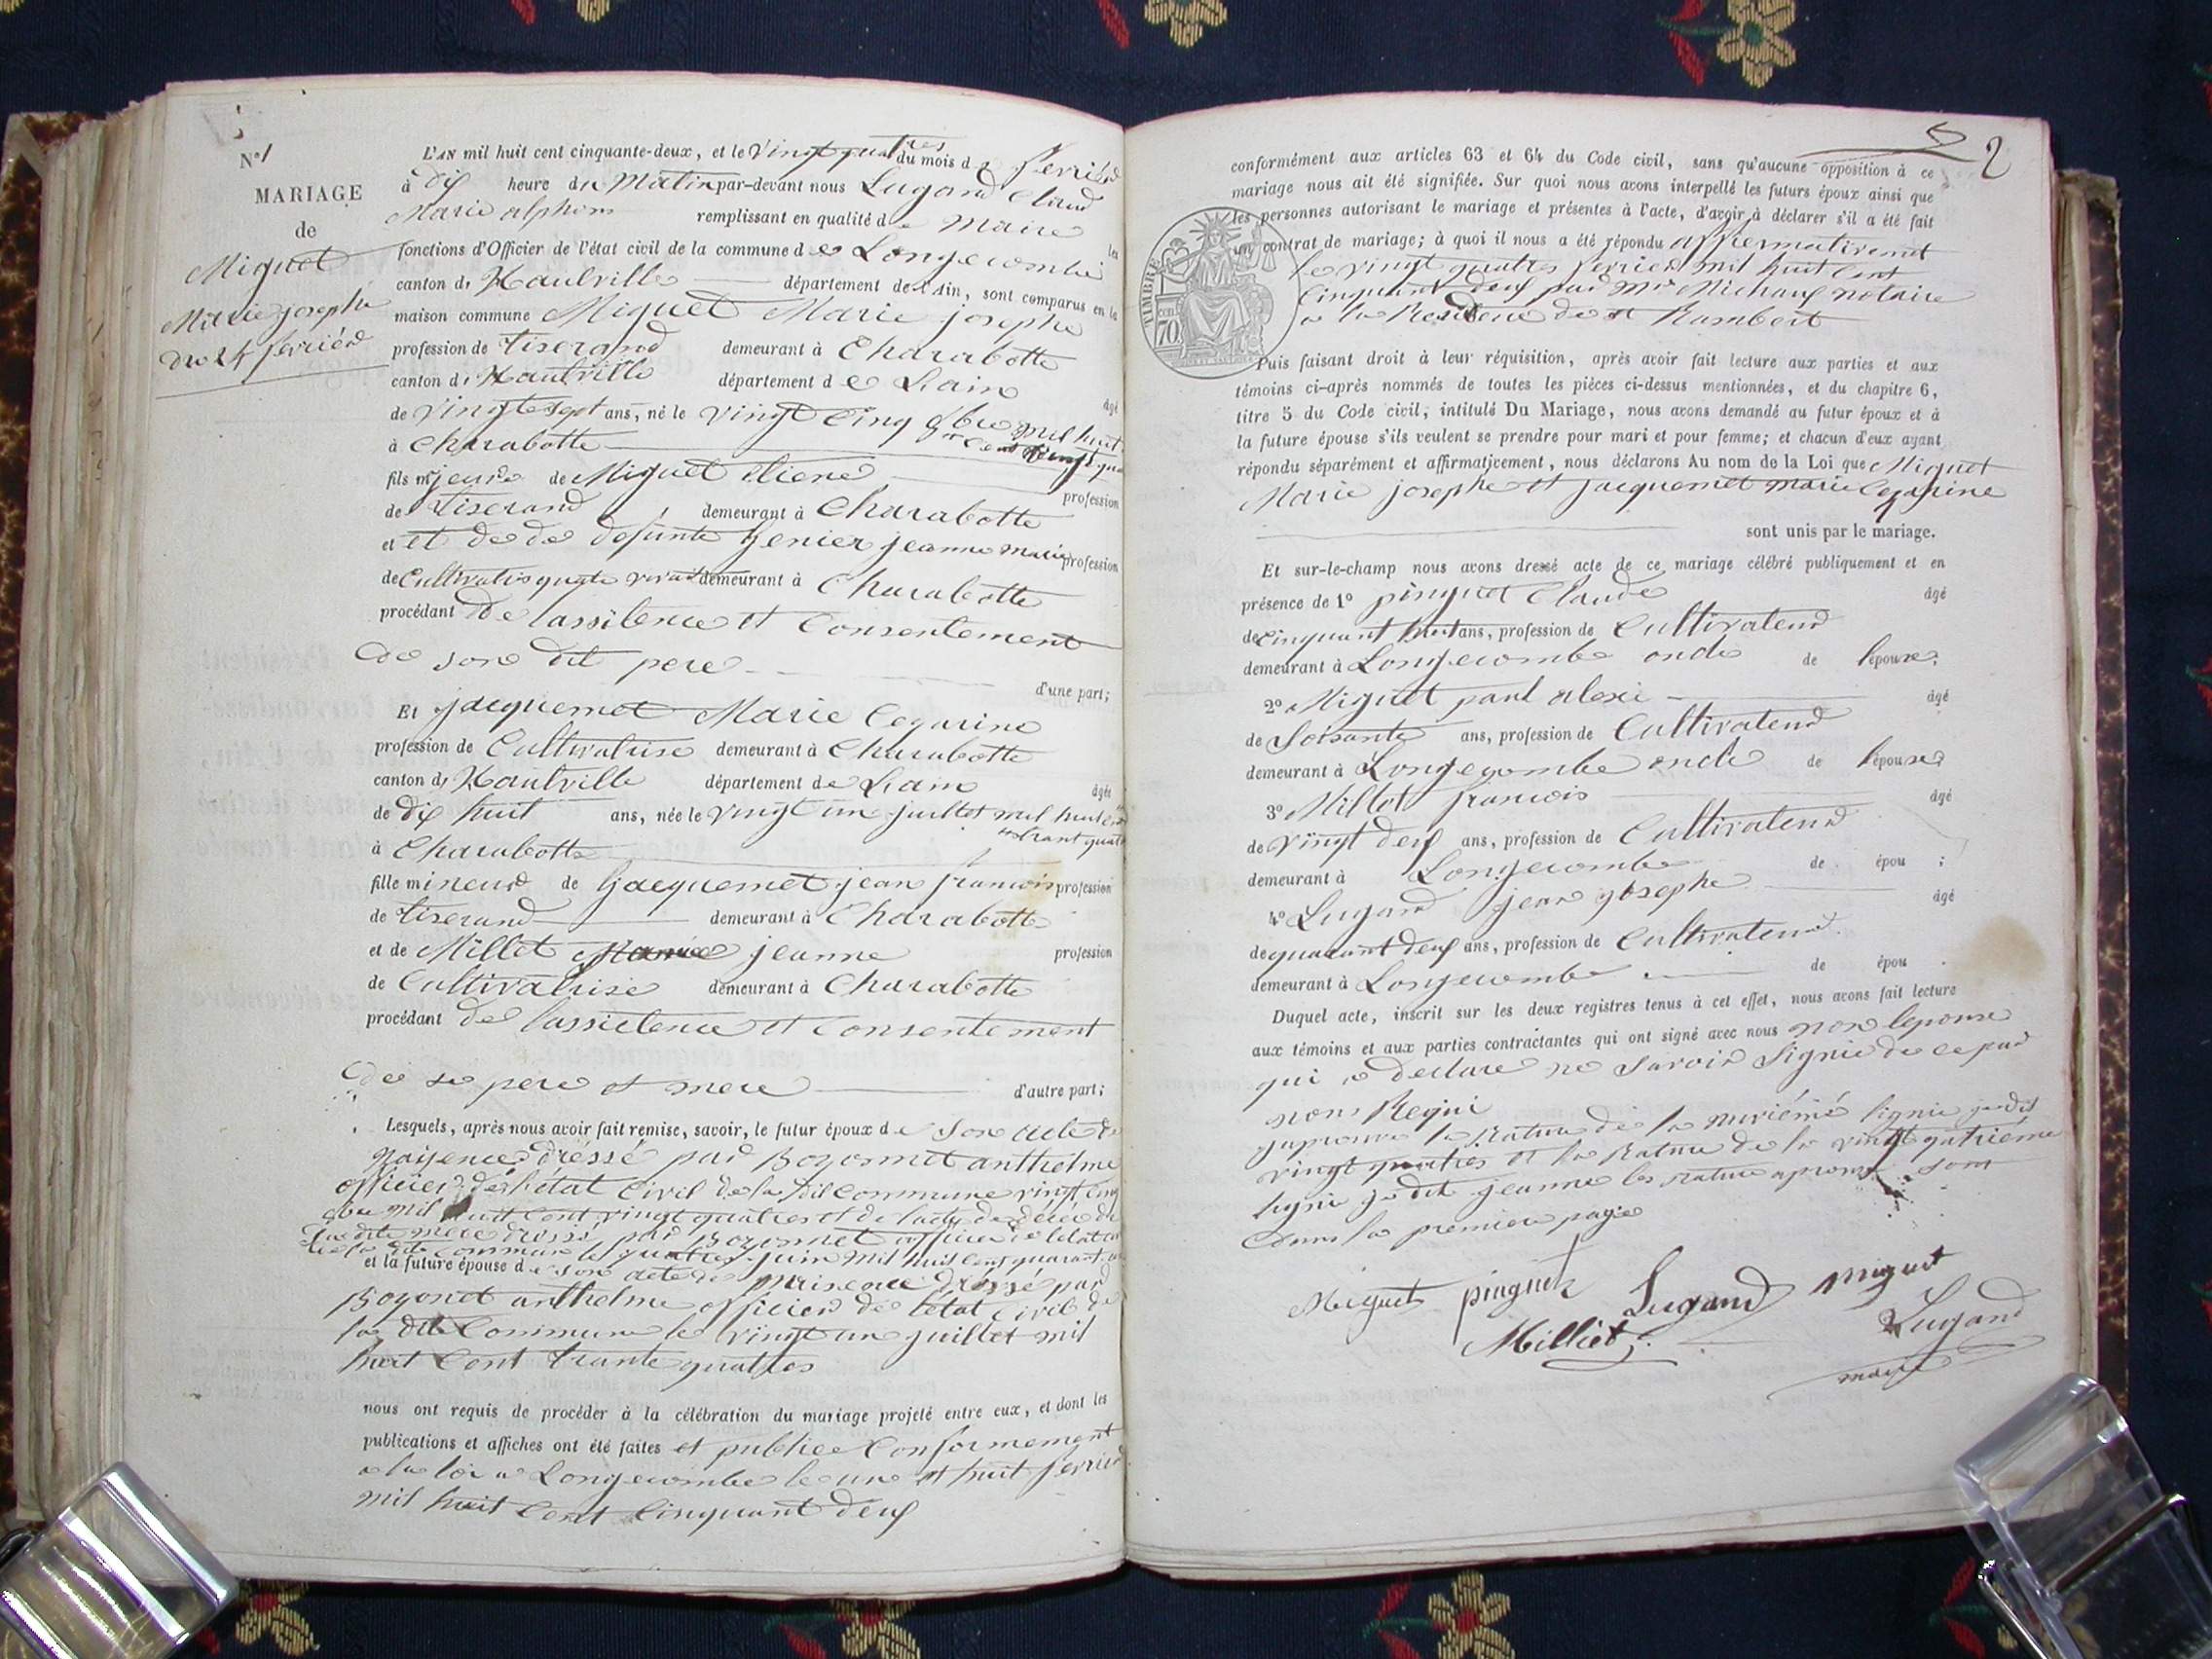 N° 1
MARIAGE
de
Miguet
Marie josephe
du 24 ferrier
L'AN mil huit cent cinquante-deux, et le vingt quatres du mois de ferrier
à dix heure du Matin par-devant nous Lugand Claud
Marie alphons remplissant en qualité de Maire les
fonctions d'Officier de l'état civil de la commune de Longecombe
canton d'Hautville département de l'Ain, sont comparus en la
maison commune Miguet Marie josephe
profession de tiserand demeurant à Charabotte
canton d'Hautville département de Lain
âgé
de vingtesept ans, né le vingt cinq 9bre mil huit
à Charabotte cent vingt qua
fils majeure de Miguet Etiene profession
de tiserand demeurant à Charabotte
et et de de defunte Genier jeanne marie profession
de Cultivatris demeurant à Charabotte
procédant De lassitence et Consentement
De son dit pere d'une part;
Et jacquemet Marie Cegarine
profession de Cultivatrise demeurant à Charabotte
canton d'Hautville département de Lain âgée
de dix huit ans, née le vingt un juillet mil huit
trant quat
à Charabotte
fille mineur de jacquemet jean francois profession
de tiserand demeurant à Charabotte
et de Millet Marie jeanne profession
de Cultivatrise demeurant à Charabotte
procédant de lassictence et Consentement
De se pere et mere d'autre part;
Lesquels, après nous avoir fait remise, savoir, le futur époux de son acte de
naisence dressé par Bozonnet anthelme
officier de l'état Civil de la dit Commune vingt cinq
9bre mil huit cent vingt quatres et de lacte de décé de
sa dite mere dressé par Bozonnet officier de letat
de la dite commune le quatres juin mil huit cent quarant
et la future épouse de son acte de naisence dréssé par
Bozonet anthelme officier de l'état Civil de
la dite Commune le vingt un juillet mil
huit Cent trante quatres
nous ont requis de procéder à la célébration du mariage projeté entre eux, et dont les
publications et affiches ont été faites et publiee Conformement
a la loi a Longecombe le une et huit ferrier
mil huit Cent Cinquant deux
2
conformément aux articles 63 et 64 du Code civil, sans qu'aucune opposition à ce
mariage nous ait été signifiée. Sur quoi nous avons interpellé les futurs époux ainsi que
les personnes autorisant le mariage et présentes à l'acte, d'avoir à déclarer s'il a été fait
un contrat de mariage; à quoi il nous a été répondu affiermativement
le vingt quatres ferrier mil huit Cent
Cinquant deux par Mre Michaux notaire
a la Residence de st Rambert
TIMBRE
cent 70
Puis faisant droit à leur réquisition, après avoir fait lecture aux parties et aux
témoins ci-après nommés de toutes les pièces ci-dessus mentionnées, et du chapitre 6,
titre 5 du Code civil, intitulé Du Mariage, nous avons demandé au futur époux et à
la future épouse s'ils veulent se prendre pour mari et pour femme; et chacun d'eux ayant
répondu séparément et affirmativement, nous déclarons Au nom de la Loi que Miguet
Marie josephe et jacquemet marie Cegarine
sont unis par le mariage.
Et sur-le-champ nous avons dressé acte de ce mariage célébré publiquement et en
présence de 1° pinguet Claude âgé
de cinquant huit ans, profession de Cultivateur
demeurant à Longecombe oncle de lépouse;
2° Miguet paul alexi âgé
de Soisante ans, profession de Cultivateur
demeurant à Longecombe oncle de lépouse;
3° Millet francois âgé
de vingt deux ans, profession de Cultivateur
demeurant à Longecombe de épou ;
4° Lugand jean josephe âgé
de quarant deux ans, profession de Cultivateur.
demeurant à Longecombe de épou .
Duquel acte, inscrit sur les deux registres tenus à cet effet, nous avons fait lecture
aux témoins et aux parties contractantes qui ont signé avec nous non lepouse
qui a declare ne savoir Signie de ce par
nous Requi
japrouve la Rature de la lignie je dis
vingt quatres et la Rature de la vingt quatriéme
ligni je dit jeanne les rature aprouve sont
dans la premiere page
Miguet pinguet Lugand Miguet
Milliet Lugand
maire